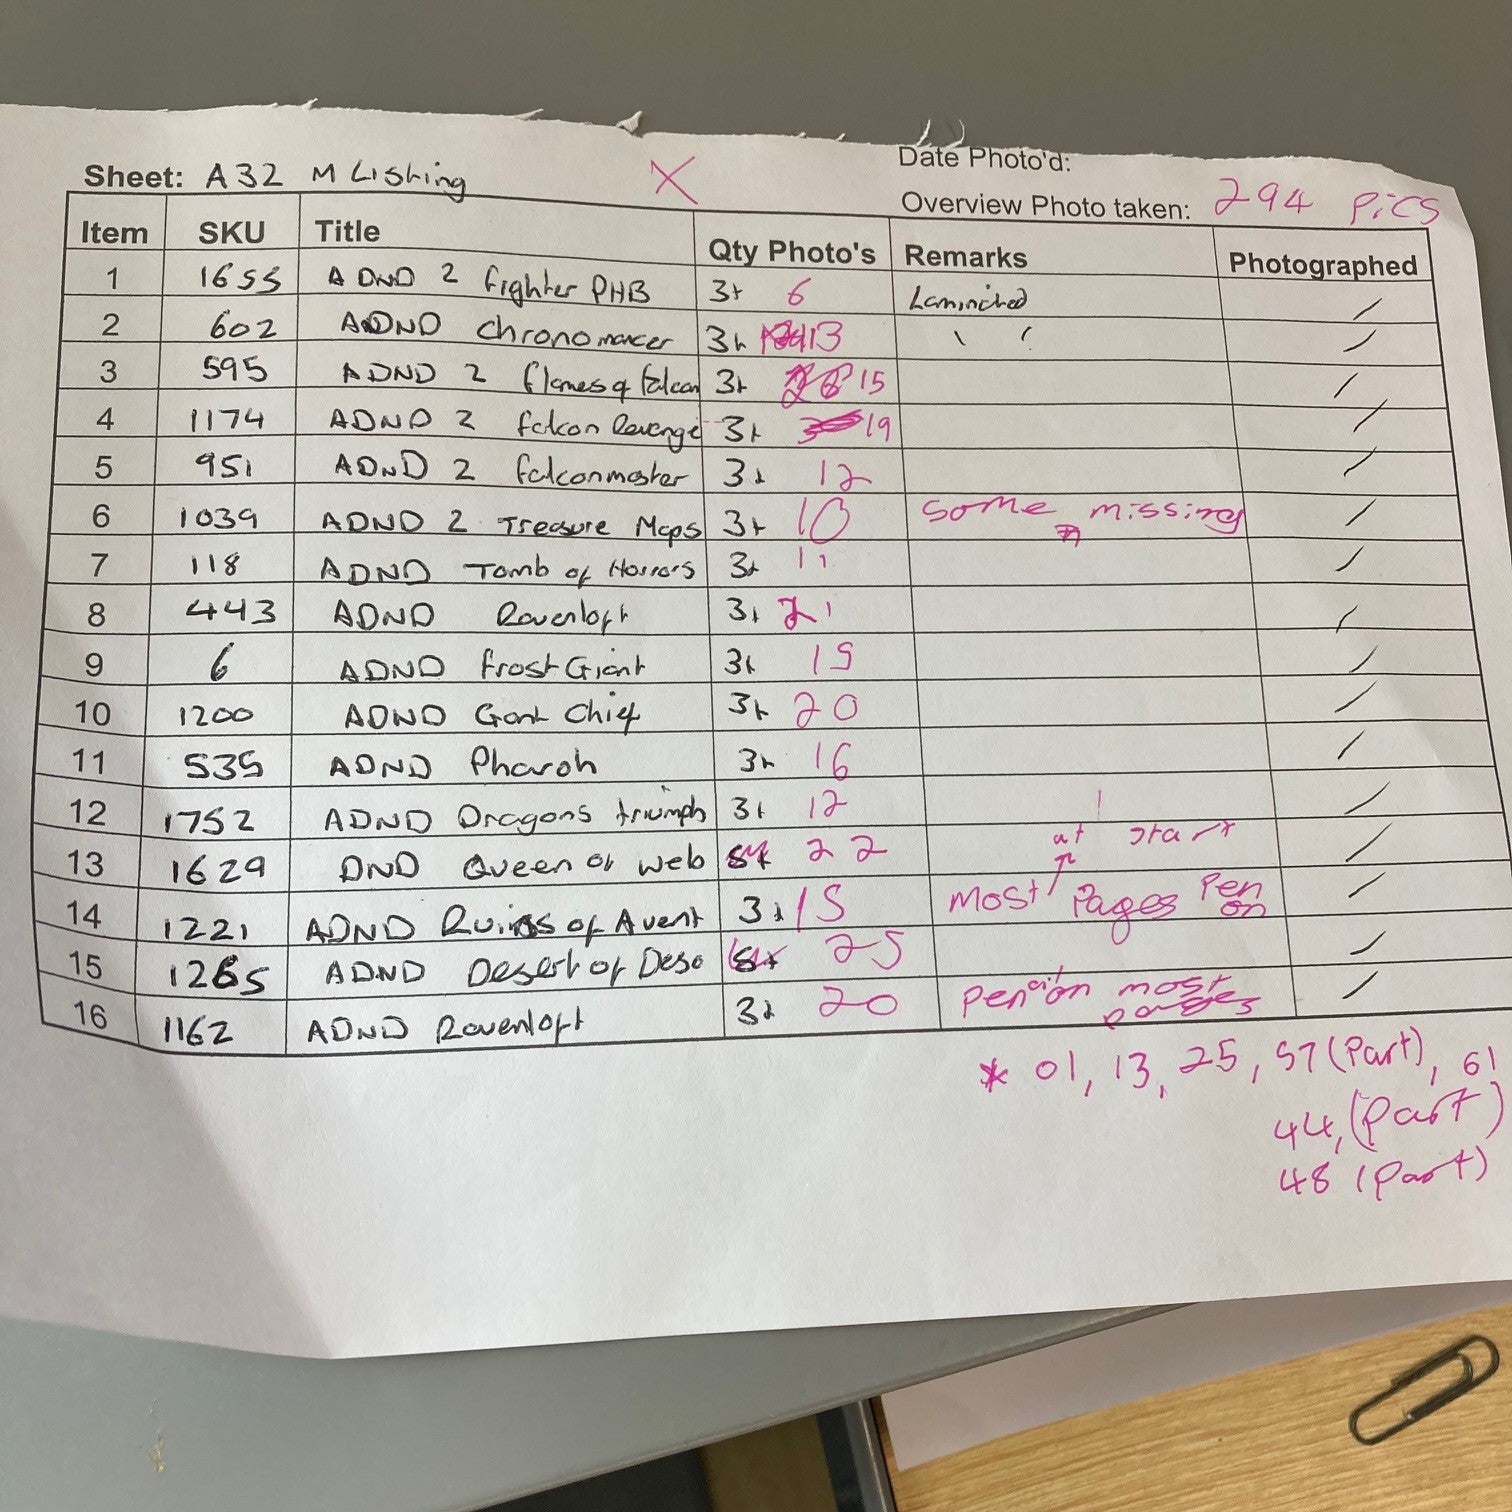 Sheet: A32 M Listing X Date Photo'd:
Overview Photo taken: 294 PiCS
Item SKU Title Qty Photo's Remarks Photographed
1 1655 ADND 2 fighter PHB 3+ 6 Laminched /
2 602 ADND Chronomancer 3+ 13 " /
3 595 ADND 2 flames of falcon 3+ 15 /
4 1174 ADND 2 falcon Revenge 3+ 19 /
5 951 ADND 2 falconmaster 3+ 12 /
6 1039 ADND 2 Treasure Maps 3+ 10 some * missing /
7 118 ADND Tomb of Horrors 3+ 11 /
8 443 ADND Ravenloft 3+ 21 /
9 6 ADND frost Giant 3+ 15 /
10 1200 ADND Gant Chief 3+ 20 /
11 535 ADND Pharoh 3+ 16 /
12 1752 ADND Dragons triumph 3+ 12 /
13 1629 DND Queen of web 22 at start /
14 1221 ADND Ruins of Avent 3+ 15 most Pages Pen on /
15 1265 ADND Desert of Deso 25 /
16 1162 ADND Ravenloft 3+ 20 Pencil on most pages /
* 01, 13, 25, 57 (Part), 61
44, (Part)
48 (Part)